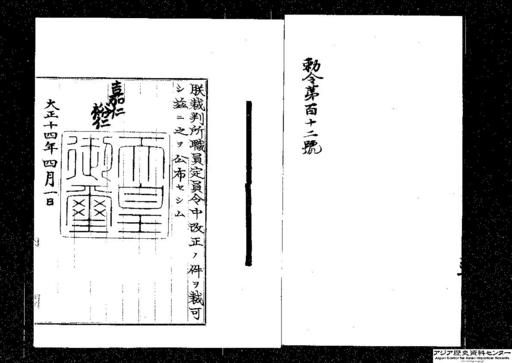 勅令第百十二號
朕裁判所職員定員令中改正ノ件ヲ裁可
シ茲ニ之ヲ公布セシム
嘉仁
裕仁
天皇
御璽
大正十四年四月一日
アジア歴史資料センター
Japan Center for Asian Historical Records